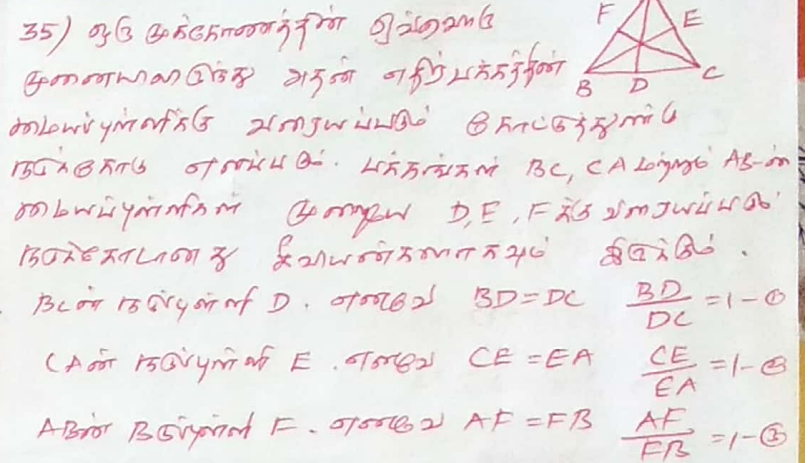 35) ஒரு முக்கோணத்தின் ஒவ்வொரு
முனையிலிருந்து அதன் எதிர்பக்கத்தின்
மையப்புள்ளிக்கு வரையப்படும் கோட்டுத்துண்டு
நடுக்கோடு எனப்படும். பக்கங்கள் BC, CA மற்றும் AB-ன்
மையப்புள்ளிகள் முறையே D, E, F க்கு வரையப்படும்
நடுக்கோடானது சீவியன்களாகவும் இருக்கும்.
BCன் நடுப்புள்ளி D. எனவே BD = DC BD/DC = 1 - ①
CAன் நடுப்புள்ளி E. எனவே CE = EA CE/EA = 1 - ②
ABன் நடுப்புள்ளி F. எனவே AF = FB AF/FB = 1 - ③
F E
B D C